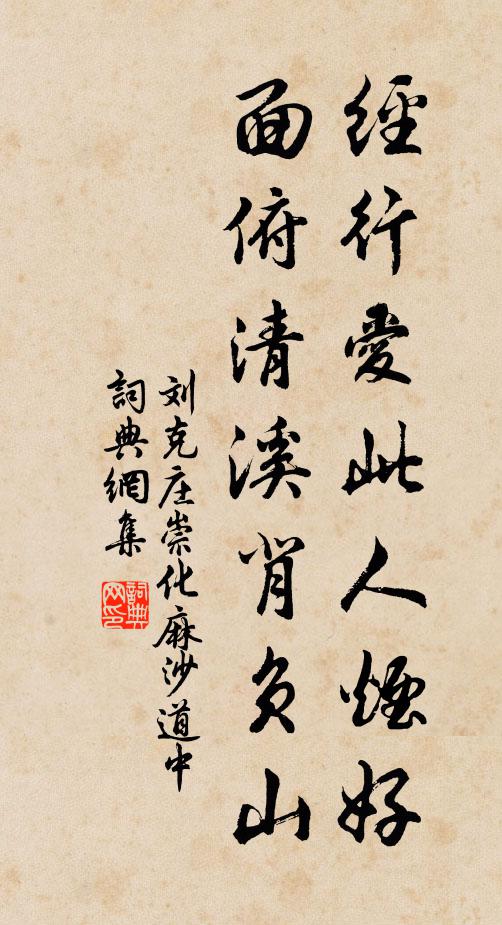 經行愛此人煙好
面俯清溪背負山
刘克庄崇化麻沙道中
詞典網集
詞典網印